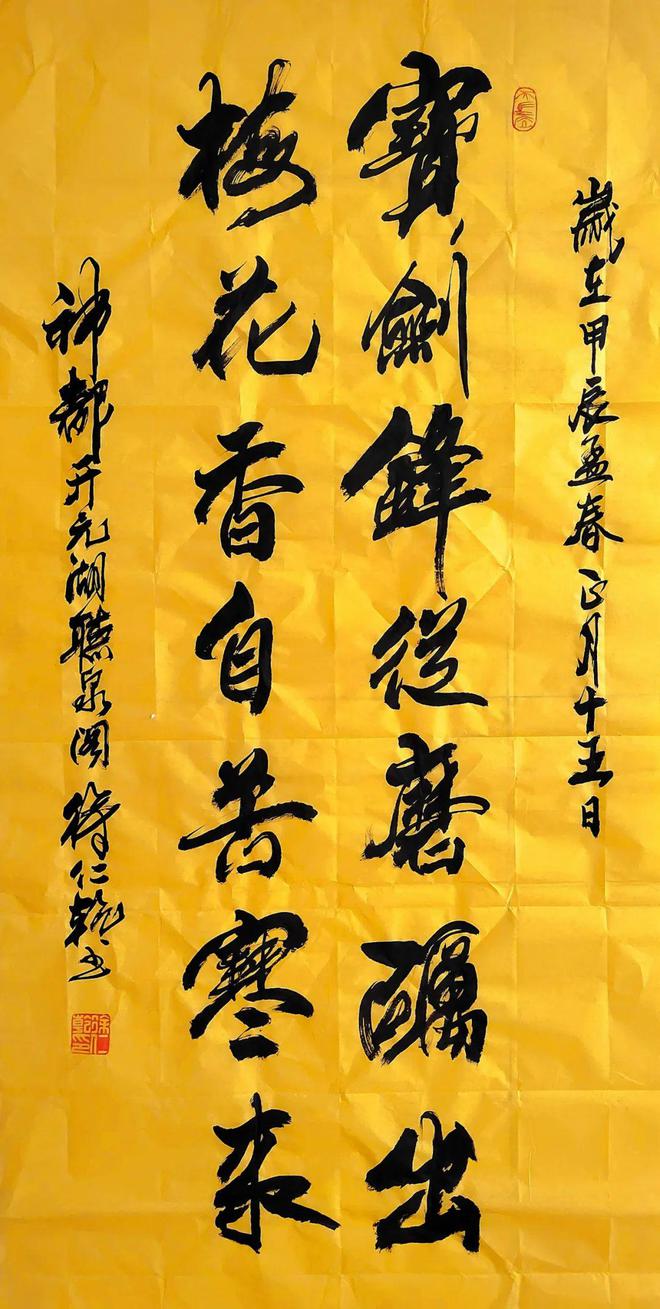 歲在甲辰孟春正月十五日
寶劍鋒從磨礪出
梅花香自苦寒來
神都开元湖聽泉閣徐仁书